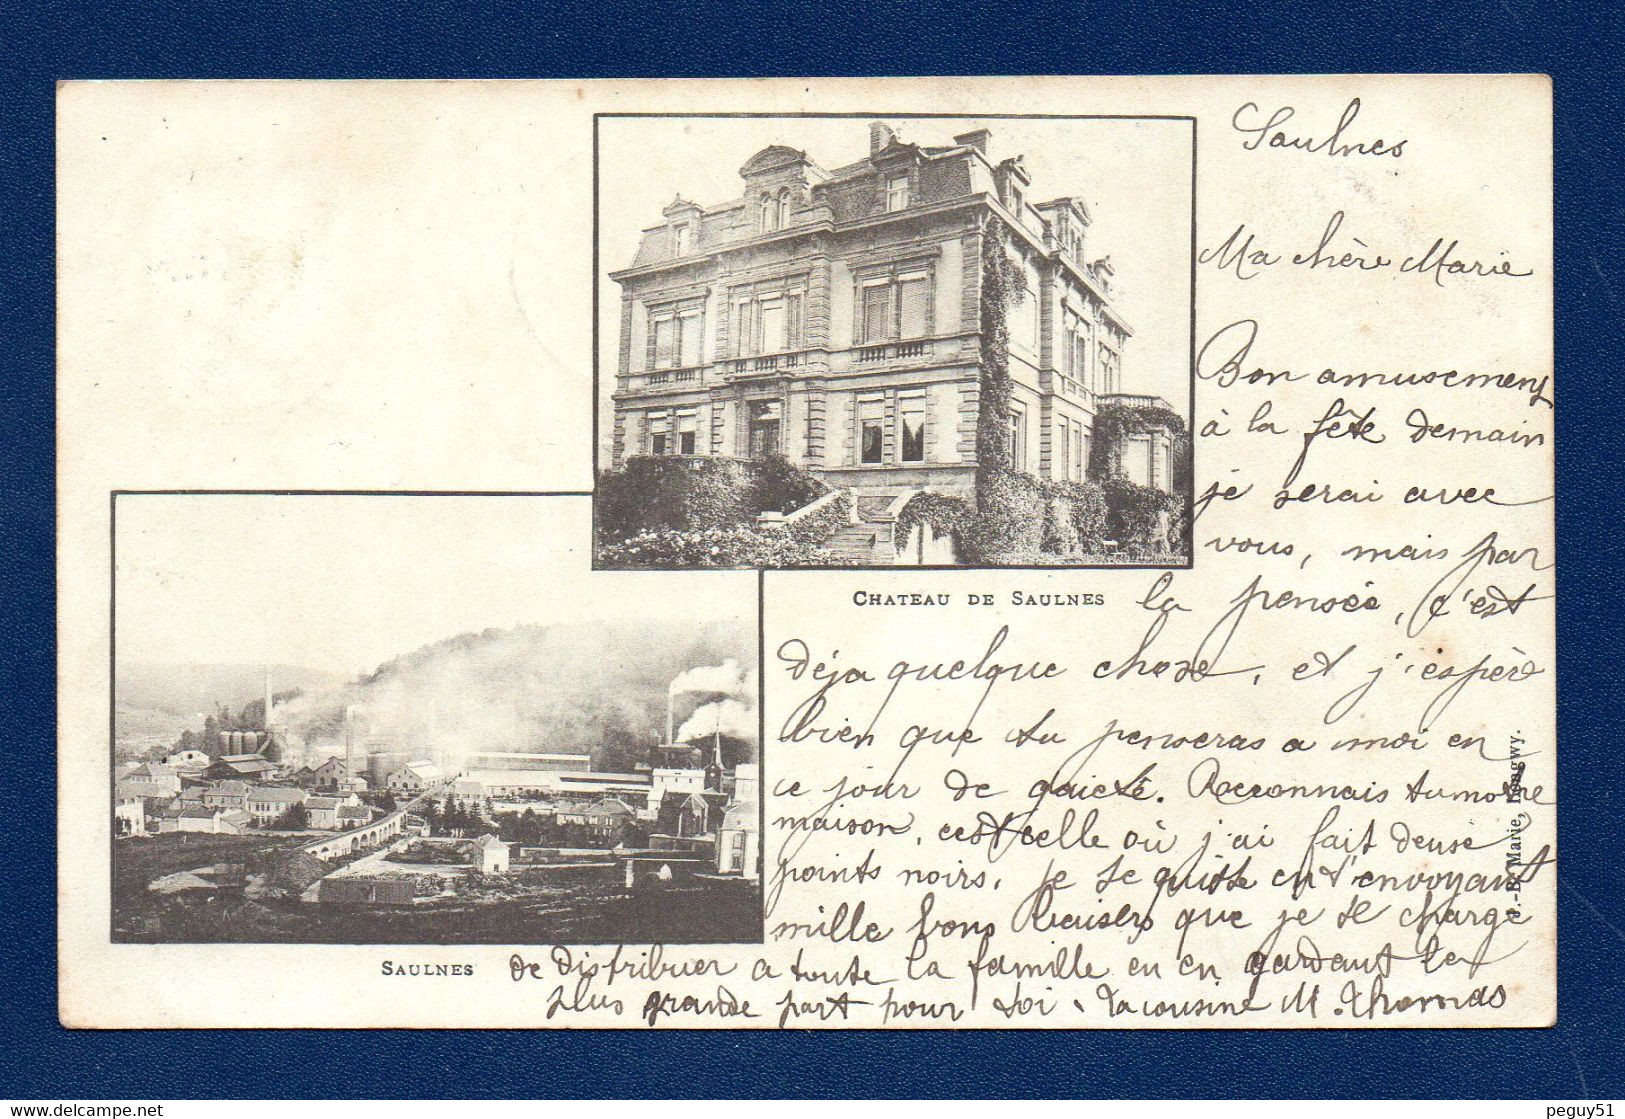 Saulnes
Ma chère Marie
Bon amusement
à la fête demain
je serai avec
vous, mais par
CHATEAU DE SAULNES
la pensée, c'est
déja quelque chose, et j'espère
bien que tu penseras a moi en
ce jour de gaieté. Reconnais tu notre
maison, c'est celle où j'ai fait deux
points noirs. je te quitte en t'envoyant
mille bons baisers que je te charge
SAULNES
de distribuer a toute la famille en en gardant la
plus grande part pour toi. Ta cousine M. Thomas
J.-B. Marie, Longwy.
delcampe.net
peguy51